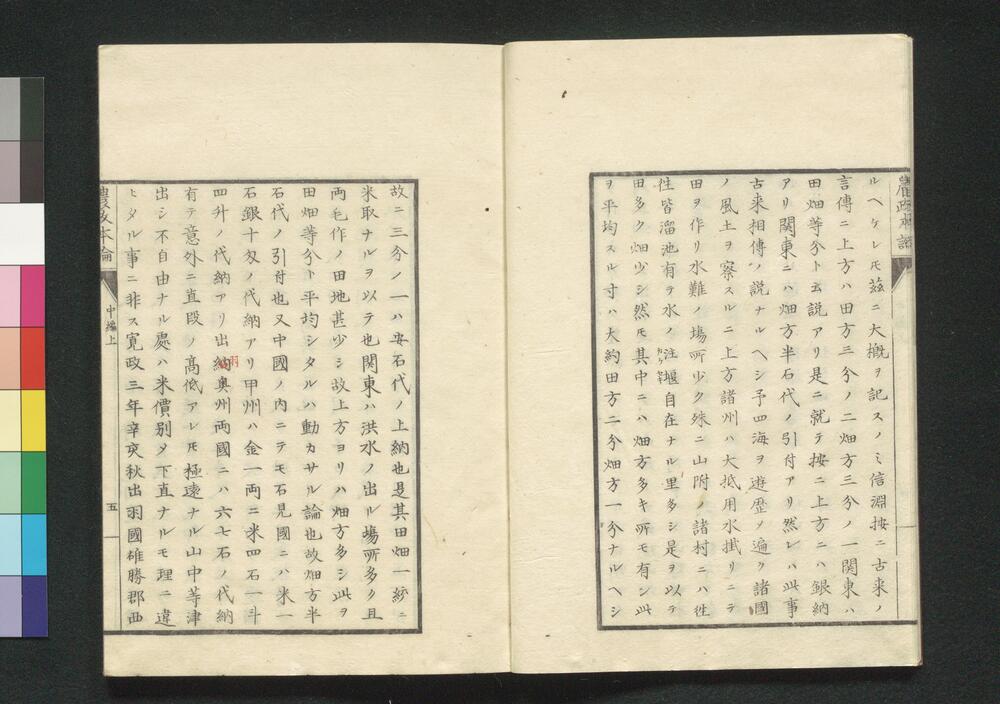 農政本論
ルヘケレモ茲ニ大概ヲ記スノミ信淵按ニ古来ノ
言傳ニ上方ハ田方三分ノ二畑方三分ノ一関東ハ
田畑等分ト云説アリ是ニ就テ按ニ上方ニハ銀納
アリ関東ニハ畑方半石代ノ引付アリ然レハ此事
古来相傳ノ説ナルヘシ予四海ヲ遊歴メ遍ク諸國
ノ風土ヲ察スルニ上方諸州ハ大抵用水掛リニテ
田ヲ作リ水難ノ場所少ク殊ニ山附ノ諸村ニハ徃
徃皆溜池有テ水ノ注堰自在ナル里多シ是ヲ以テ
田多ク畑少シ然モ其中ニハ畑方多キ所モ有ン此
ヲ平均スル寸ハ大約田方二分畑方一分ナルヘシ
故ニ三分ノ一ハ安石代ノ上納也是其田畑一紗ニ
米取ナルヲ以テ也関東ハ洪水ノ出ル場所多ク且
両毛作ノ田地甚少シ故上方ヨリハ畑方多シ此ヲ
田畑等分ト平均シタルハ動カサル論也故畑方半
石代ノ引付也又中國ノ内ニテモ石見國ニハ米一
石銀十匁ノ代納アリ甲州ハ金一両ニ米四石一斗
四升ノ代納アリ出納奥州両國ニハ六七石ノ代納
羽
有テ意外ニ直段ノ高低アレモ極遠ナル山中等津
出シ不自由ナル處ハ米價別メ下直ナルモ理ニ違
ヒタル事ニ非ス寛政三年辛亥秋出羽國雄勝郡西
農政本論
中編上
五